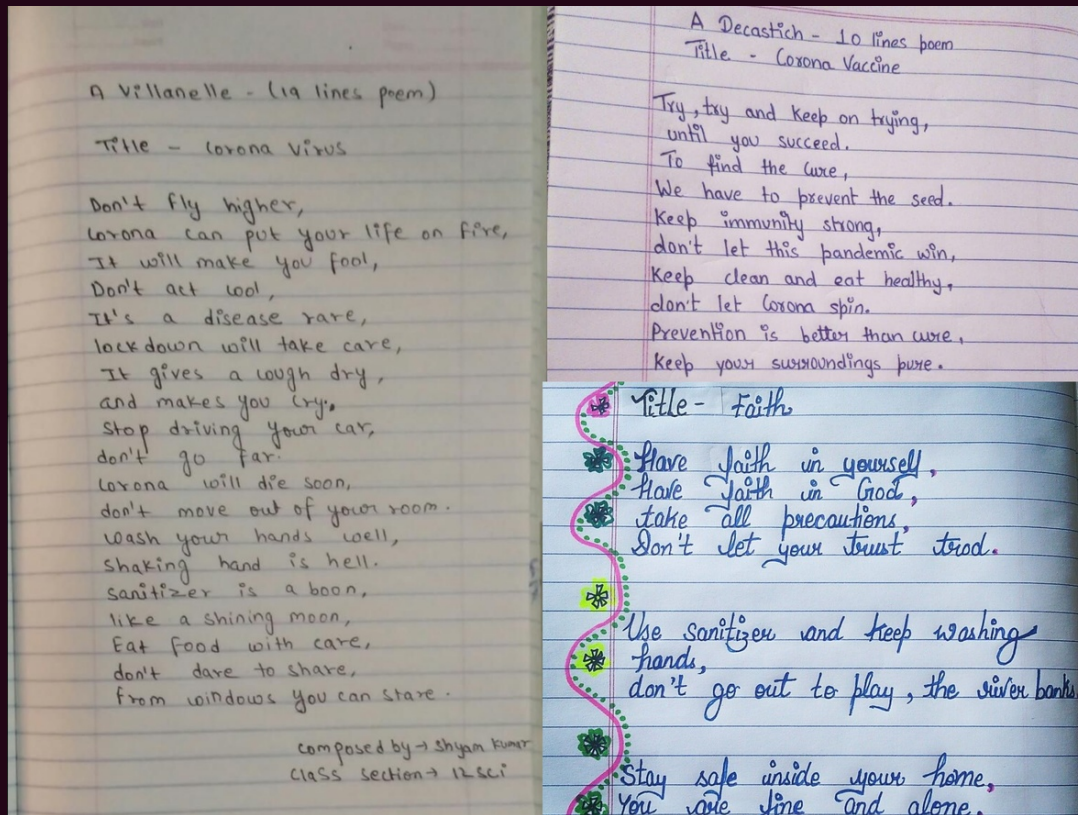 A Villanelle - (19 lines poem)
Title - Corona Virus
Don't fly higher,
Corona can put your life on fire,
It will make you fool,
Don't act cool,
It's a disease rare,
lock down will take care,
It gives a cough dry,
and makes you cry.
Stop driving your car,
don't go far.
Corona will die soon,
don't move out of your room.
wash your hands well,
shaking hand is hell.
sanitizer is a boon,
like a shining moon,
Eat food with care,
don't dare to share,
from windows you can stare.
composed by → Shyam Kumar
Class section → 12 sci
A Decastich - 10 lines poem
Title - Corona Vaccine
Try, try and keep on trying,
until you succeed.
To find the cure,
We have to prevent the seed.
Keep immunity strong,
don't let this pandemic win,
Keep clean and eat healthy,
don't let Corona spin.
Prevention is better than cure,
keep your surroundings pure.
Title - Faith
Have faith in yourself,
Have faith in God,
take all precautions,
Don't let your trust trod.
Use sanitizer and keep washing
hands,
don't go out to play, the river banks
Stay safe inside your home,
You are fine and alone.